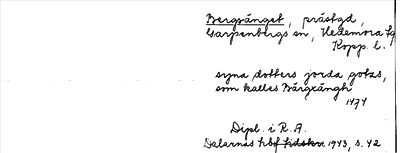 Bergsänget, prästgd,
Garpenbergs sn, Hedemora tg
Kopp. l.
syna dotters jorda gotzs,
som kalles Bärgxängh
1474
Dipl. i R. A.
Dalarnas hbf tidskr. 1943, s. 42